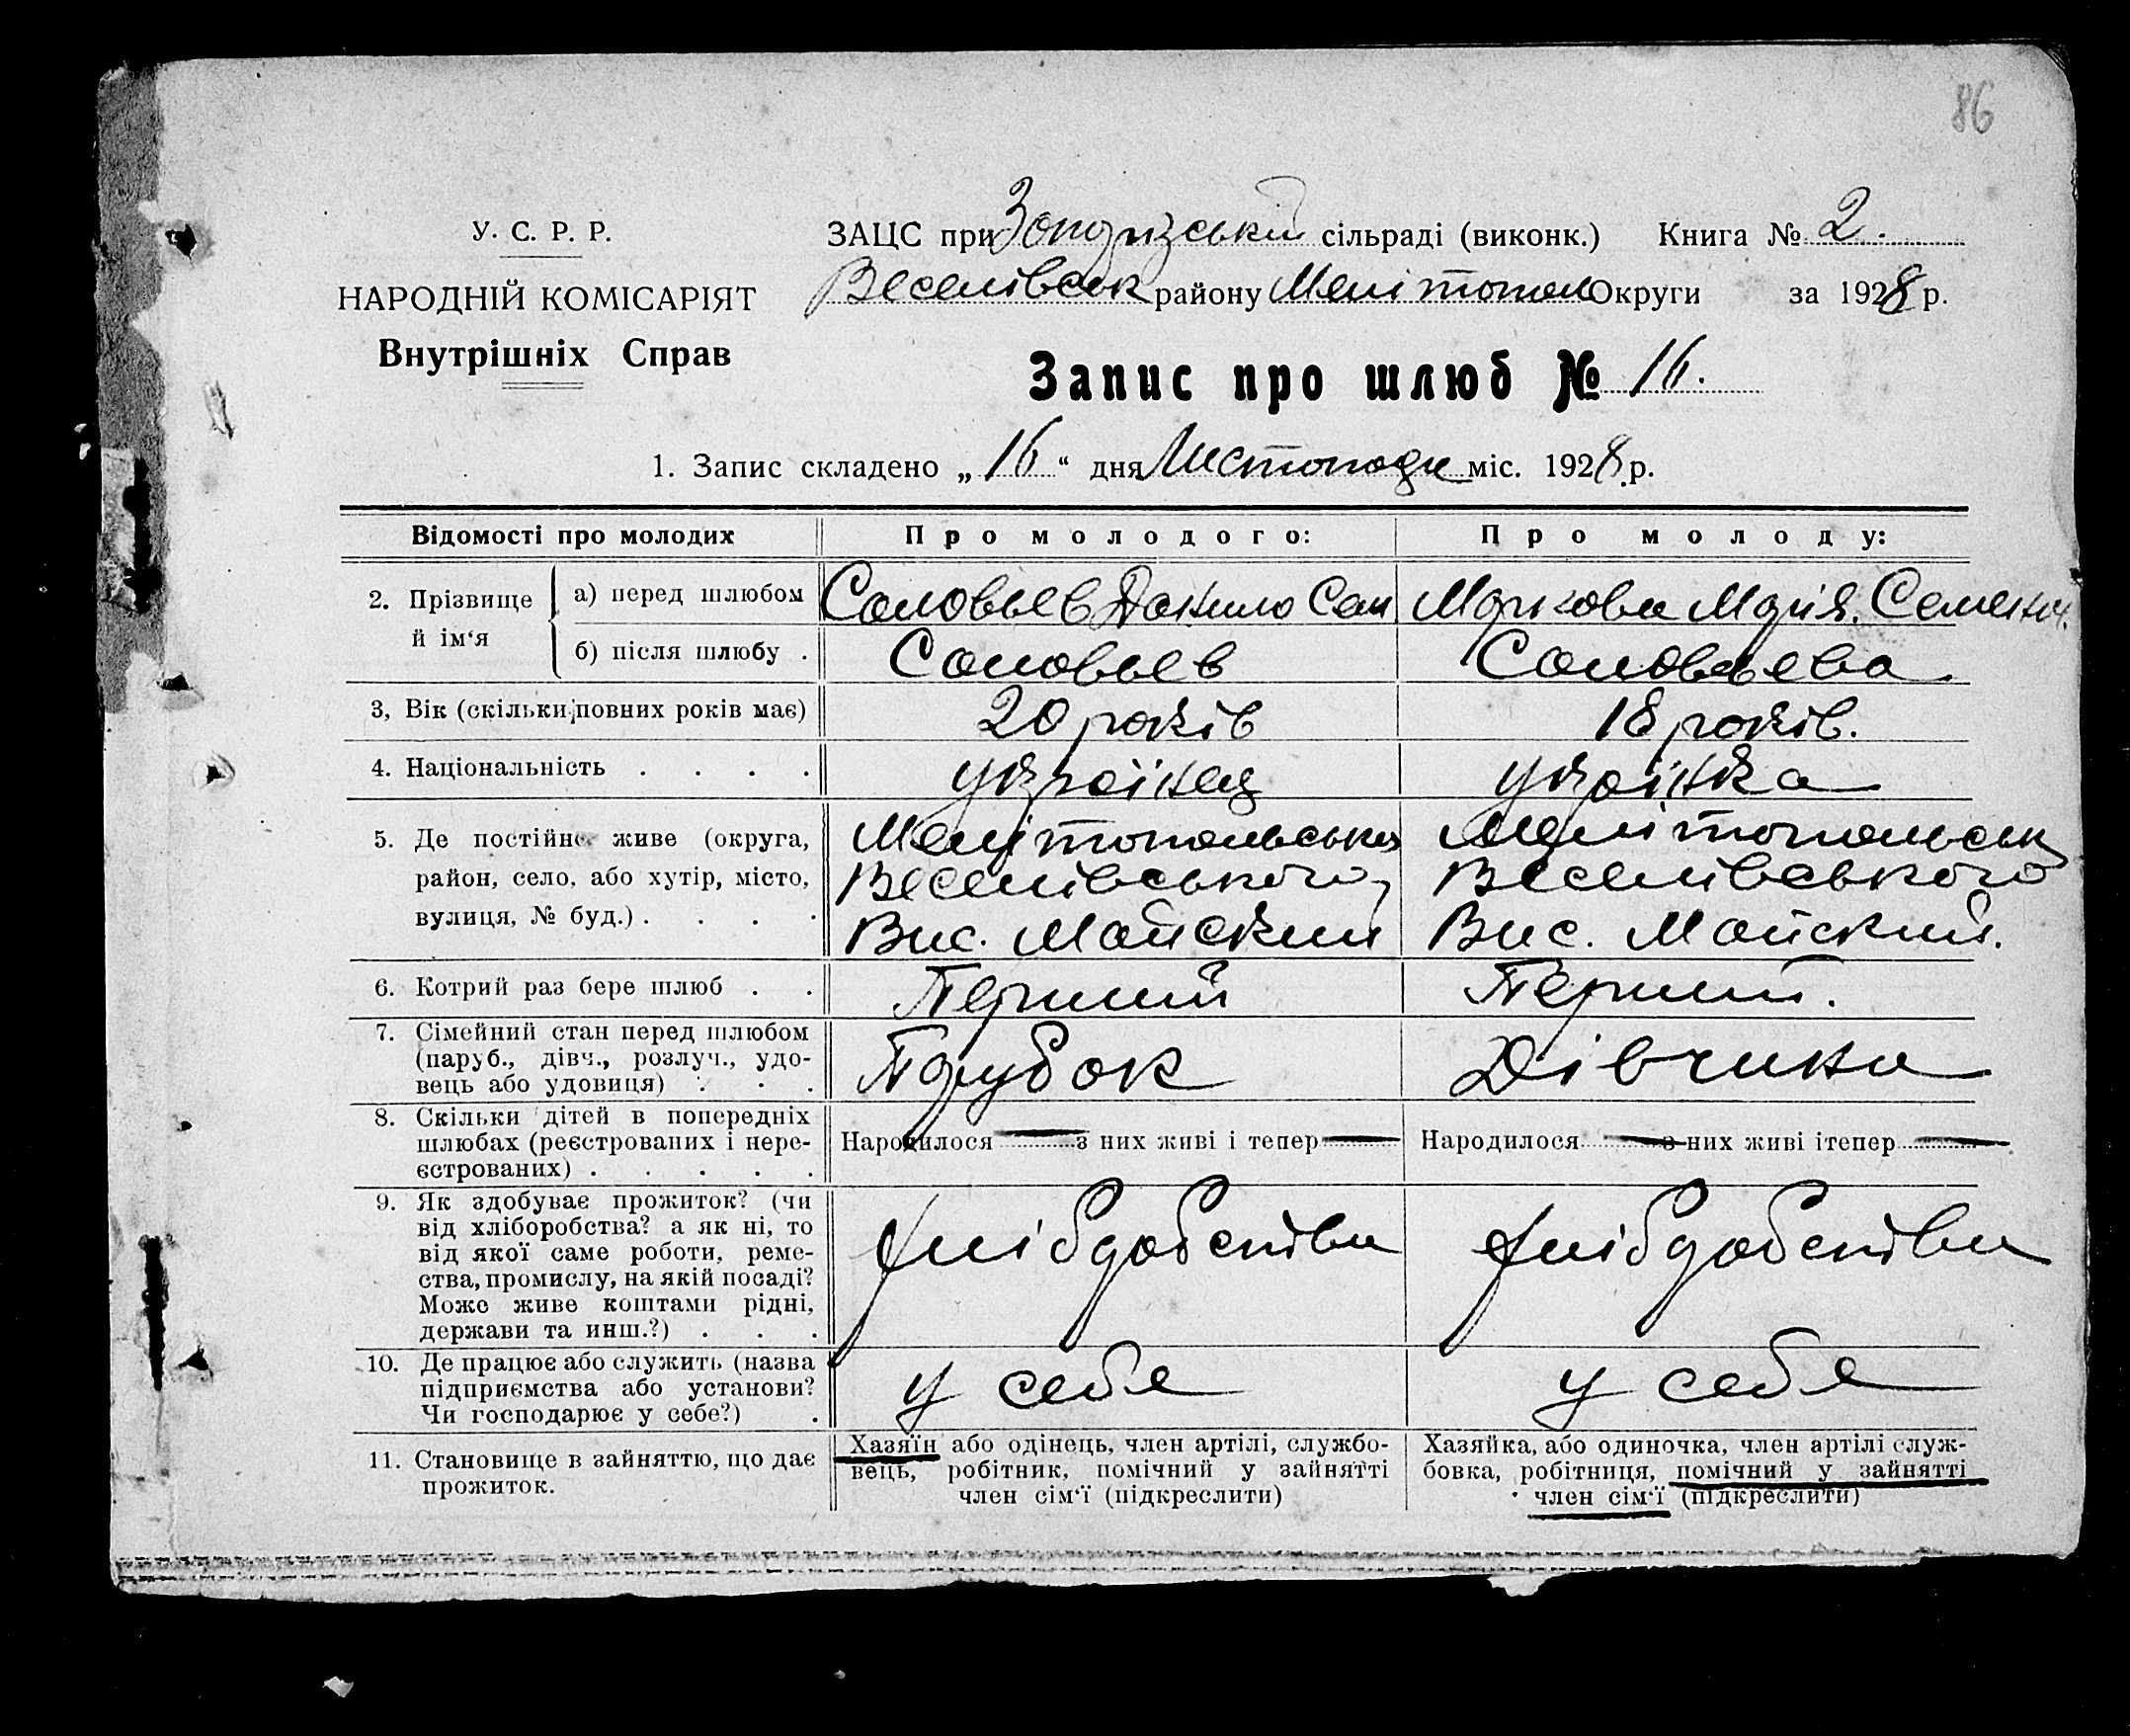 86
У. С. Р. Р.
НАРОДНІЙ КОМІСАРІЯТ
Внутрішніх Справ
ЗАЦС при сільраді (виконк.) Книга № 2.
Веселівськ району Мелітопол Округи за 1928 р.
Запис про шлюб № 16.
1. Запис складено „ 16 “ дня Листопада міс. 1928 р.
Відомості про молодих Про молодого: Про молоду:
2. Прізвище й ім‘я
а) перед шлюбом Соловьев Данило Сем Маркова Марія Семенов.
б) після шлюбу . Соловьев Соловьева
3, Вік (скільки повних років має) 20 років 18 років.
4. Національність . . . . українец українка
5. Де постійно живе (округа, Мелітопольська Мелітопольськ
район, село, або хутір, місто, Веселівського, Веселівського
вулиця, № буд.) . . . . Вис. Майский Вис. Майский.
6. Котрий раз бере шлюб . . Перший Перший.
7. Сімейний стан перед шлюбом
(паруб., дівч., розлуч., удо-
вець або удовиця) . . . Парубок Дівчина
8. Скільки дітей в попередніх
шлюбах (реєстрованих і нере-
єстрованих) . . . . .
Народилося — з них живі і тепер — Народилося — з них живі ітепер —
9. Як здобуває прожиток? (чи
від хліборобства? а як ні, то
від якої саме роботи, реме-
ства, промислу, на якій посаді?
Може живе коштами рідні,
держави та инш.?) . . .
хлібробства хлібробства
10. Де працює або служить (назва
підприємства або установи?
Чи господарює у себе?) .
у себе у себе
11. Становище в зайняттю, що дає
прожиток.
Хазяїн або одінець, член артілі, службо-
вець, робітник, помічний у зайнятті
член сім‘ї (підкреслити)
Хазяйка, або одиночка, член артілі служ-
бовка, робітниця, помічний у зайнятті
член сім‘ї (підкреслити)